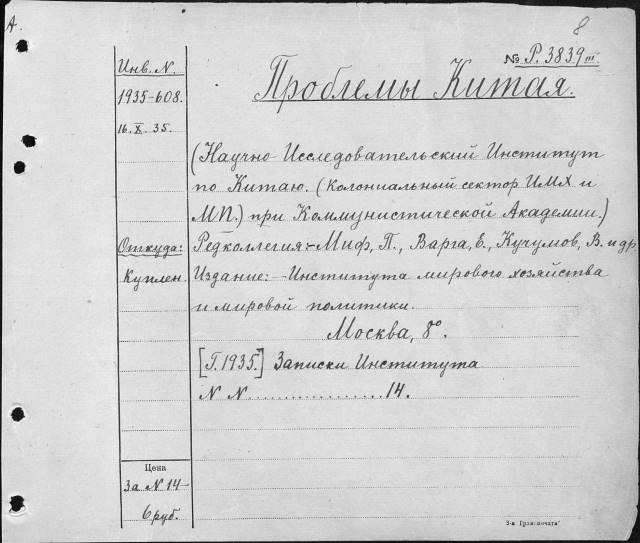 А.
8
№ Р. 3839 III.
Инв. N.
1935-608.
16. X. 35.
Проблемы Китая.
(Научно-Исследовательский Институт
по Китаю. (Колониальный сектор ИМХ и
МП.) при Коммунистической Академии.)
Откуда:
Куплен.
Редколлегия:-Миф, П., Варга, Е., Кучумов, В. и др.
Издание:-Института мирового хозяйства
и мировой политики.
Москва, 8°.
[Г. 1935.] Записки Института
N N.................14.
Цена
За N 14-
6 руб.
3-я Гравпечать